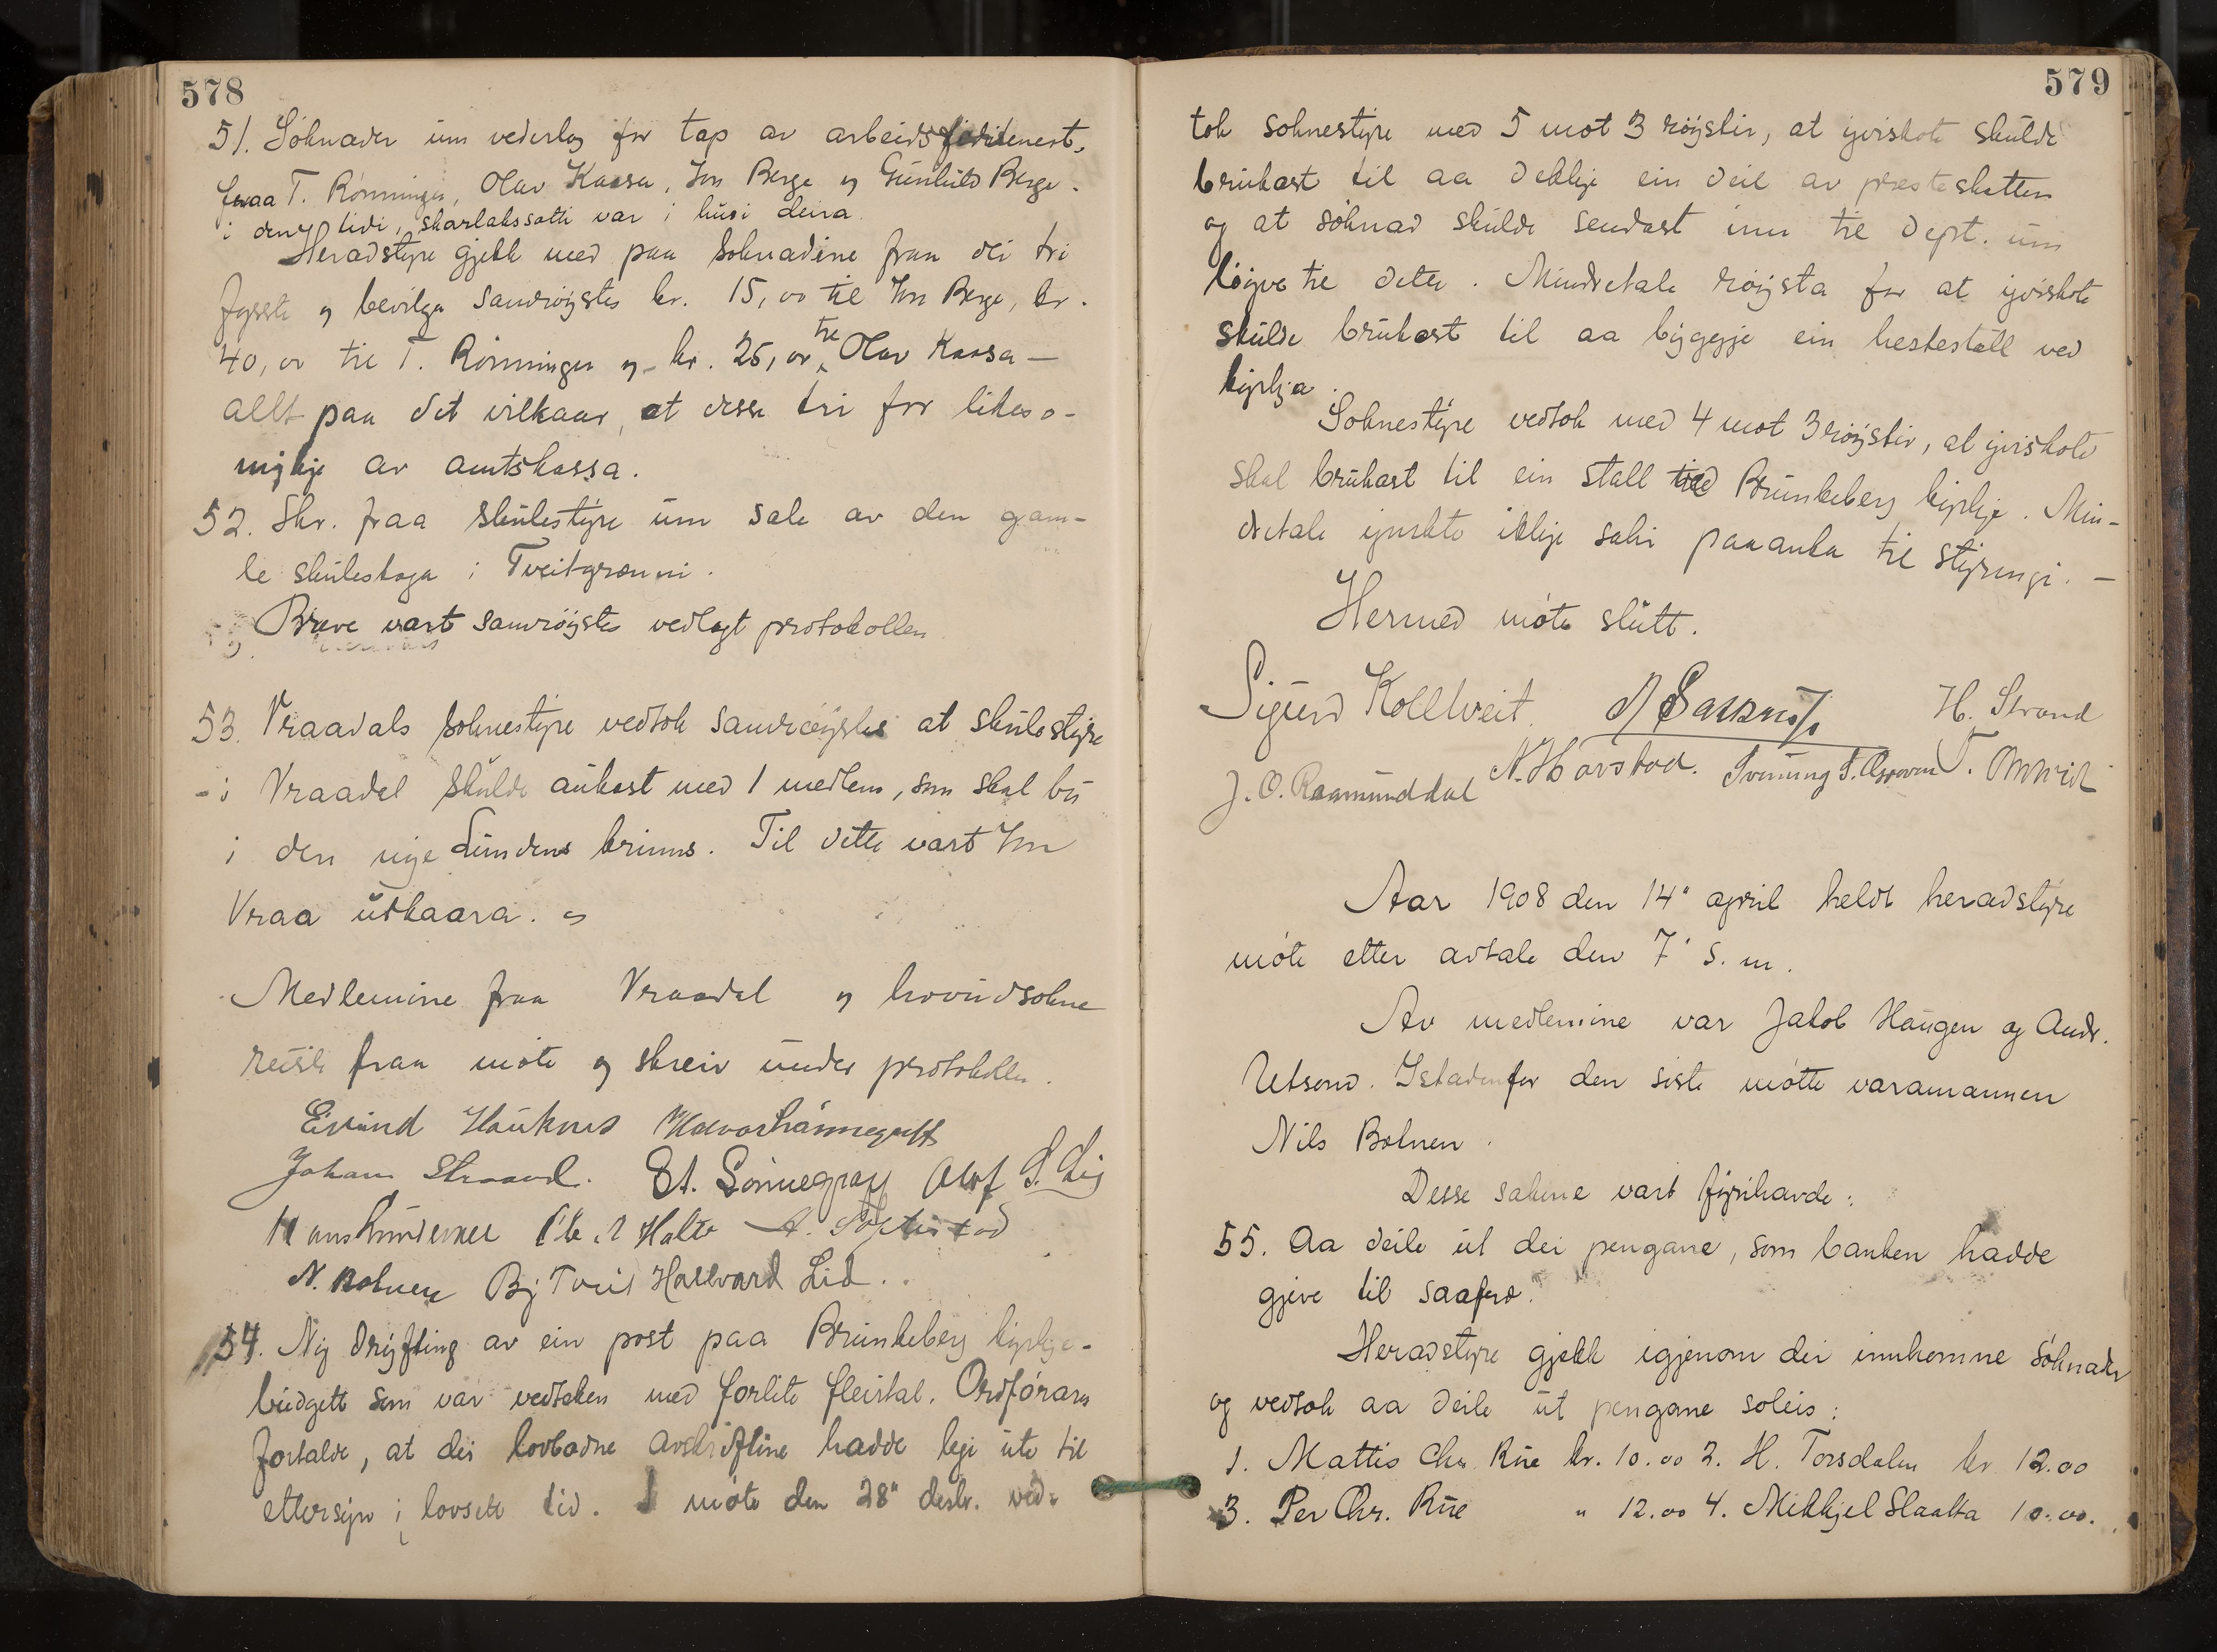 578
51. Söknader um vederlag for tap av arbeidsfortenest,
fraa T. Rönningen, Olav Kaasa, Jon Berge og Gunhild Berge.
i den tidi, skarlakssotti var i husi deira.
Heradstyre gjekk med paa söknadine fraa dei tri
fysste og bevilga samröystes kr. 15,00 til Jon Berge, kr.
40,00 til T. Rönningen og kr. 25,00 til Olav Kaasa —
allt paa det vilkaar, at desse tri fær likeso-
mykje av amtskassa.
52. Skr. fraa skulestyre um sale av den gam-
le skulestoga i Tveitgrænni.
Breve vart samröystes vedlagt protokollen
53. Vraadals soknestyre vedtok samröystes at skulestyre
i Vraadal skulde aukast med 1 medlem, som skal bu
i den nye Lundens krinns. Til dette vart Jon
Vraa utkaara.
Medlemine fraa Vraadal og hovudsokne
reiste fraa möte og skreiv under protokollen.
Eivind Hauknes
Johan Straand. Olaf S. Lid
Holte
N. Bolnen Bj Tveit Hallvard Lid.
54. Ny dryfting av ein post paa Brunkeberg kyrkje-
budgett som var vedteken med forlite fleirtal. Ordföraren
fortalde, at dei lovbodne avskriftine hadde legi ute til
ettersyn i lovsett tid. I möte den 28" desbr. ved-
579
tok soknestyre med 5 mot 3 röyster, at yviskote skulde
brukast til aa dekkje ein deil av presteskatten
og at söknad skulde sendast inn til Dept. um
löyve til dette. Mindretale röysta for at yviskote
skulde brukast til aa byggje ein hestestall ved
kyrkja.
Soknestyre vedtok med 4 mot 3 röyster, at yviskote
skal brukast til ein stall ved Brunkeberg kyrkje. Min-
dretale ynskte ikkje saki paaanka til styringi. —
Hermed möte slutt.
Sigurd Kolltveit. H. Strand
J. O. Raamunddal N. Haavstad.
Aar 1908 den 14" april heldt heradstyre
möte etter avtale den 7' s. m.
Av medlemine var Jakob Haugen og Andr.
Utsond. Istadenfor den siste mötte varamannen
Nils Bolnen.
Desse sakine vart fyrihavde:
55. Aa deile ut dei pengane, som banken hadde
gjeve til saafræ.
Heradstyre gjekk igjenom dei innkomne söknader
og vedtok aa deile ut pengane soleis:
1. Mattis Chr. Rue kr. 10.00 2. H. Torsdalen kr 12.00
3. Per Chr. Rue " 12.00 4. Mikkjel Slaatta 10.00.